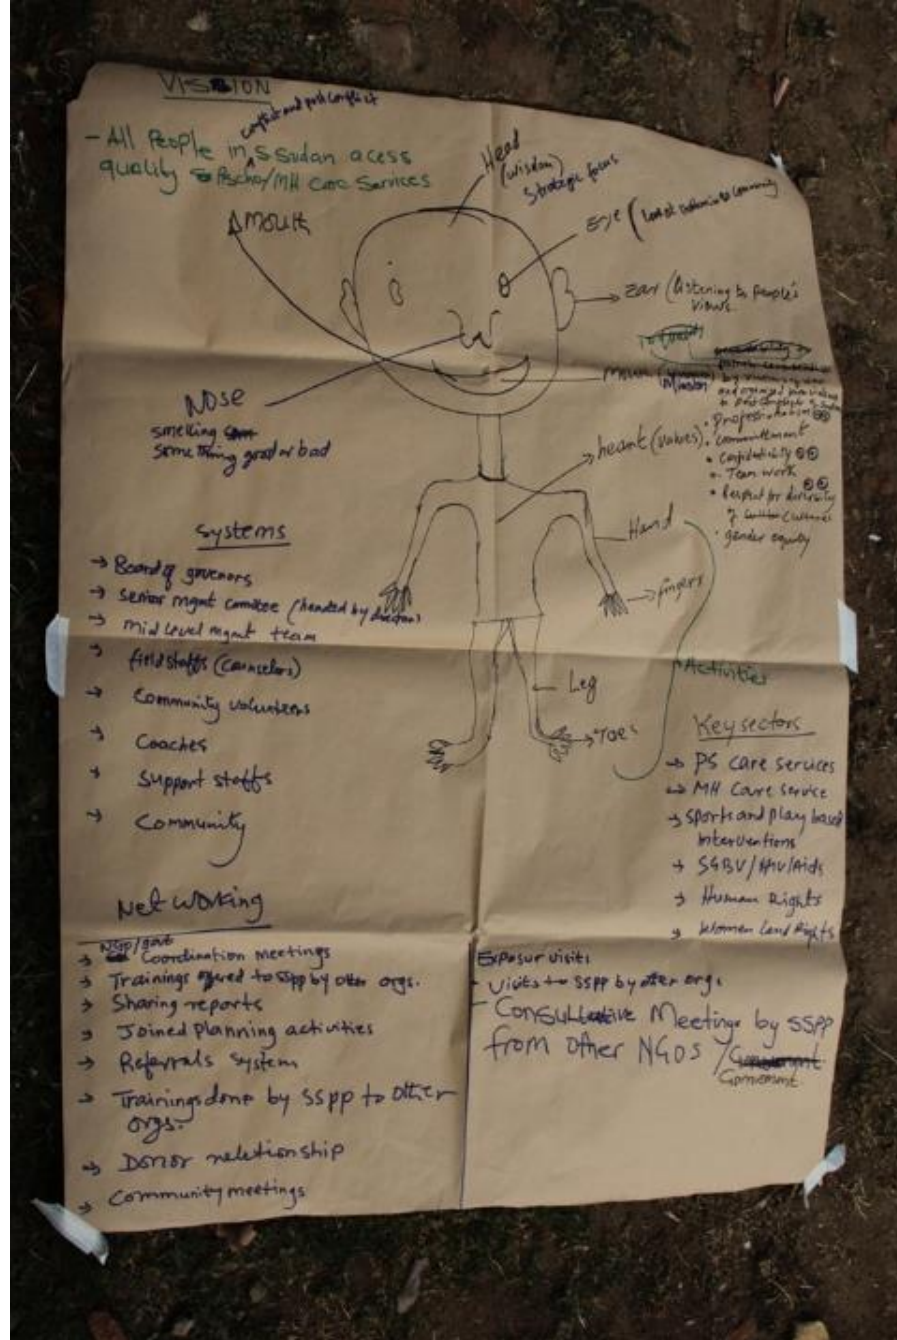 VISION
conflict and post conflict
- All People in S Sudan acess
quality Pscho/MH Care Services
Head
(wisdom)
Strategic focus
Mouth
Eye (
to community
Ear (listening to people's
views
Mission
Nose
smelling
something good or bad
heart (values)
• Professionalism
• committment
• Confidentiality
• Team work
• Respect for diversity
of cultures
• gender equity
Hand
fingers
Activities
Leg
Toes
Systems
→ Board of governors
→ Senior mgmt comittee (headed by director)
→ Mid level mgmt team
→ field staffs (counselors)
→ Community volunteers
→ Coaches
→ Support staffs
→ Community
Key sectors
→ PS care services
→ MH Care Service
→ Sports and play based
interventions
→ SGBV/HIV/Aids
→ Human Rights
→ Women Land Rights
Net working
NGO/govt
→ Coordination meetings
→ Trainings offered to SSPP by other orgs.
→ Sharing reports
→ Joined planning activities
→ Referrals system
→ Trainings done by SSPP to other
orgs.
→ Donor relationship
→ Community meetings
Exposur visits
- Visits to SSPP by other orgs
- Consultative Meetings by SSPP
from other NGOs /